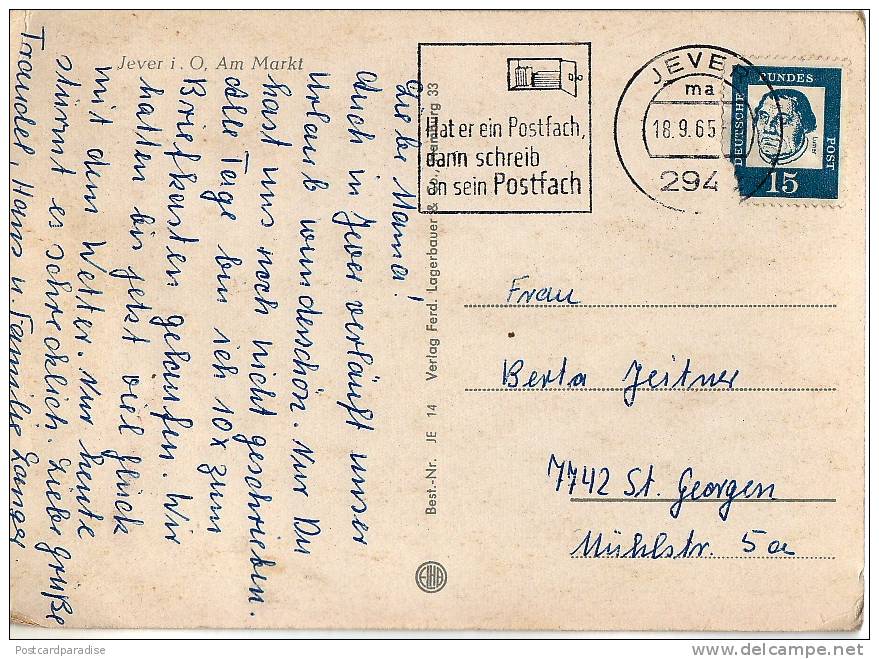 Jever i. O, Am Markt
Liebe Mama!
Auch in Jever verläuft unser
Urlaub wunderschön. Nur Du
hast uns noch nicht geschrieben.
Alle Tage bin ich 10x zum
Briefkasten gelaufen. Wir
hatten bis jetzt viel Glück
mit dem Wetter. Nur heute
stürmt es schrecklich. Liebe Grüße
Traudel, Hans u. Familie Langer
Best.-Nr. JE 14 Verlag Ferd. Lagerbauer & Hamburg 33
EHB
Hat er ein Postfach,
dann schreib
an sein Postfach
JEVER
ma
18.9.65
294
DEUTSCHE
BUNDES
POST
Luther
15
Frau
Berta Zeitner
7742 St. Georgen
Mühlstr. 5a
Postcardparadise
www.delcampe.net